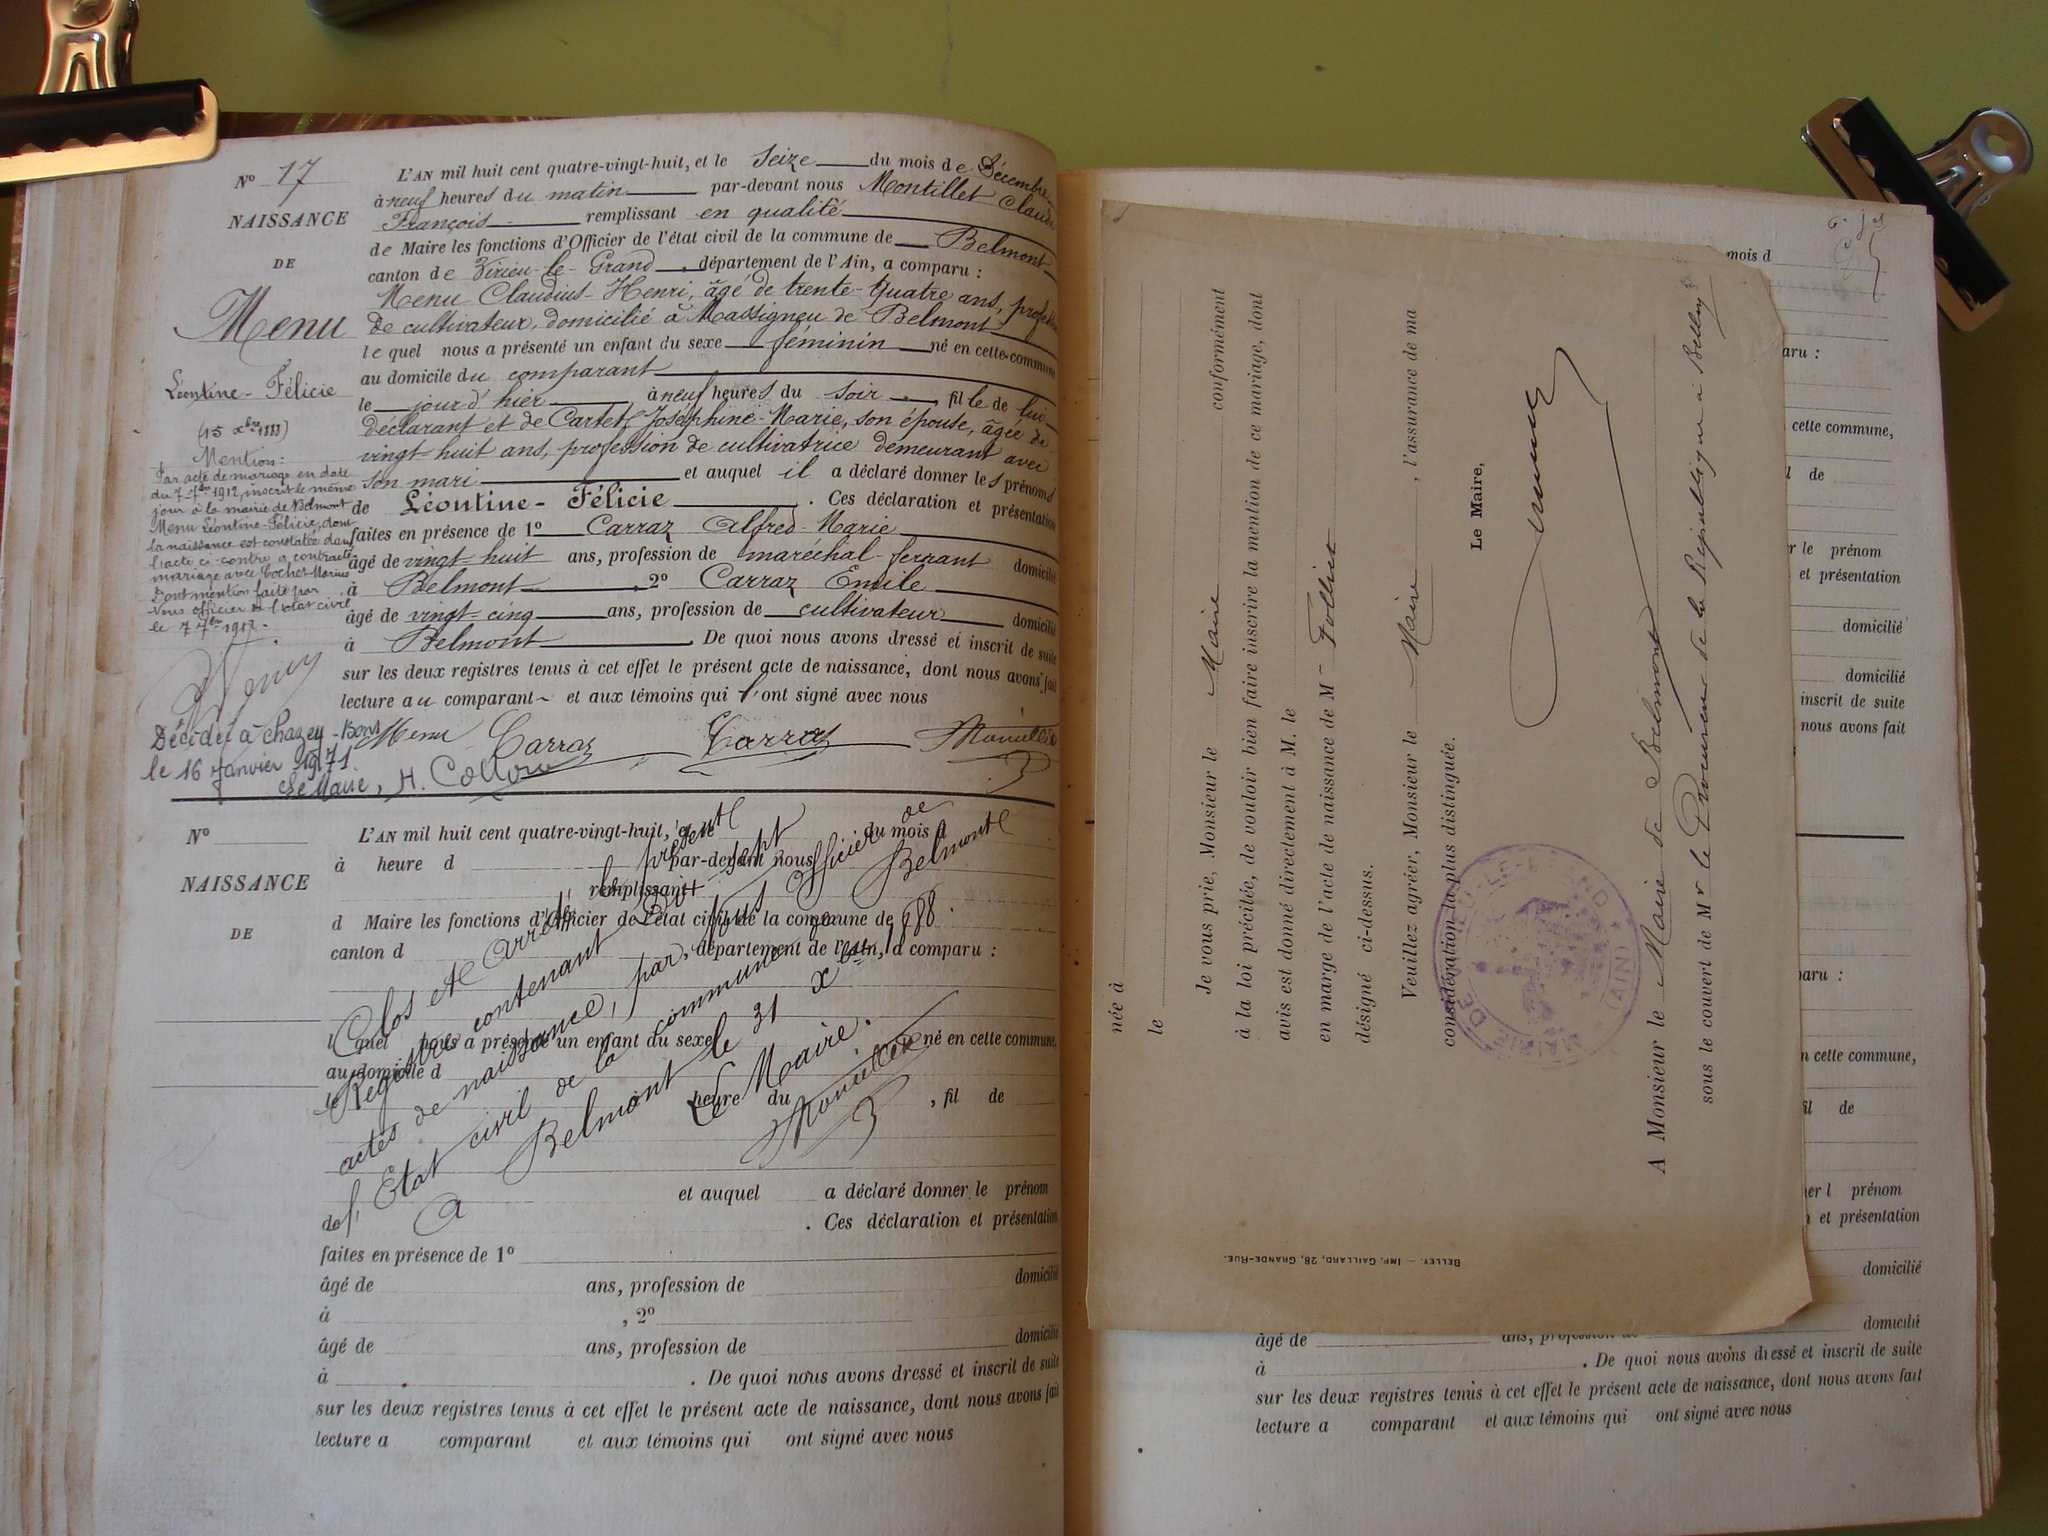 N° 17
NAISSANCE
DE
Menu
Léontine-Félicie
(15 xbre 1888)
Mention:
Par acte de mariage en date
du 7 7bre 1912, inscrit le même
jour à la mairie de Belmont
Menu Léontine-Félicie, dont
la naissance est constatée dans
l'acte ci-contre a contracté
mariage avec Cochet Marius
Dont mention faite par
Nous officier de l'état civil
le 7 7bre 1912.
Décédée à Chazey-Bons
le 16 Janvier 1971.
Le Maire,
L'AN mil huit cent quatre-vingt-huit, et le Seize du mois de Décembre
à neuf heures du matin par-devant nous Montillet Claude
François remplissant en qualité
de Maire les fonctions d'Officier de l'état civil de la commune de Belmont
canton de Virieu-le-Grand, département de l'Ain, a comparu :
Menu Claudius-Henri, âgé de trente-quatre ans, profession
de cultivateur, domicilié à Massigneu de Belmont
lequel nous a présenté un enfant du sexe féminin né en cette commune
au domicile du comparant
le jour d'hier, à neuf heures du soir, fille de lui
déclarant et de Joséphine-Marie, son épouse, âgée de
vingt-huit ans, profession de cultivatrice demeurant avec
son mari et auquel il a déclaré donner les prénoms
de Léontine-Félicie. Ces déclaration et présentation
faites en présence de 1° Carraz Alfred-Marie
âgé de vingt-huit ans, profession de maréchal-ferrant domicilié
à Belmont, 2° Carraz Emile
âgé de vingt-cinq ans, profession de cultivateur domicilié
à Belmont. De quoi nous avons dressé et inscrit de suite
sur les deux registres tenus à cet effet le présent acte de naissance, dont nous avons fait
lecture au comparant et aux témoins qui l'ont signé avec nous
Menu Carraz Carraz
N°
NAISSANCE
DE
L'AN mil huit cent quatre-vingt-huit, et le du mois d
à heure d par-devant nous
remplissant
d Maire les fonctions d'Officier de l'état civil de la commune de
canton d , département de l'Ain, a comparu :
l quel nous a présenté un enfant du sexe né en cette commune,
au domicile d
le heure du , fil de
et auquel a déclaré donner le prénom
de . Ces déclaration et présentation
faites en présence de 1°
âgé de ans, profession de domicilié
à , 2°
âgé de ans, profession de domicilié
à . De quoi nous avons dressé et inscrit de suite
sur les deux registres tenus à cet effet le présent acte de naissance, dont nous avons fait
lecture a comparant et aux témoins qui ont signé avec nous
Clos et Arrêté le présent
Registre contenant dix-sept
actes de naissance, par nous Officier de
l'Etat civil de la commune de Belmont
A Belmont le 31 xbre 1888.
Le Maire.
née à
le
Je vous prie, Monsieur le Maire conformément
à la loi précitée, de vouloir bien faire inscrire la mention de ce mariage, dont
avis est donné directement à M. le
en marge de l'acte de naissance de M Folliet
désigné ci-dessus.
Veuillez agréer, Monsieur le Maire, l'assurance de ma
considération la plus distinguée.
Le Maire,
MAIRIE DE VIRIEU-LE-GRAND (AIN)
A Monsieur le Maire de Belmont
sous le couvert de Mr le Procureur de la République à Belley
BELLEY. — IMP. GAILLARD, 28, GRANDE-RUE.
mois d
aru :
cette commune,
il de
er le prénom
et présentation
domicilié
domicilié
inscrit de suite
nous avons fait
paru :
n cette commune,
fil de
ner l prénom
n et présentation
domicilié
âgé de ans, profession de domicilié
à . De quoi nous avons dressé et inscrit de suite
sur les deux registres tenus à cet effet le présent acte de naissance, dont nous avons fait
lecture a comparant et aux témoins qui ont signé avec nous